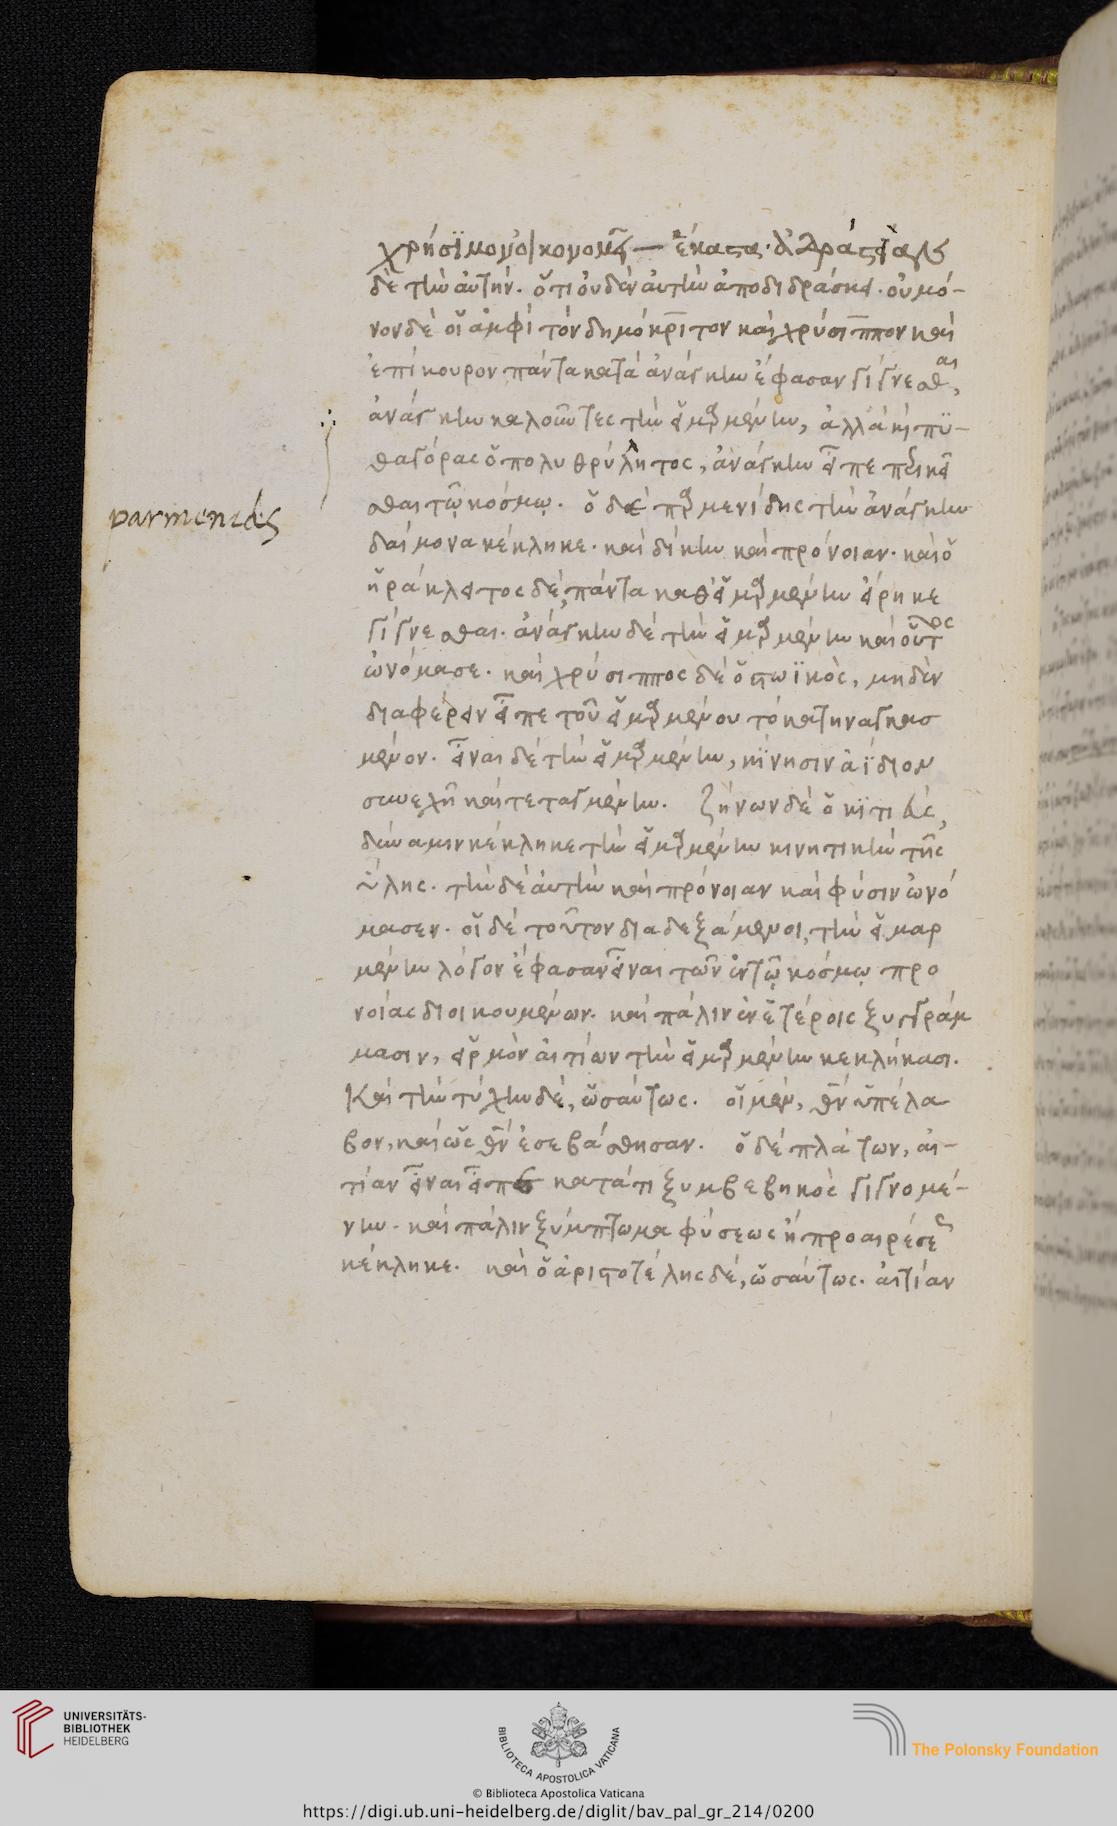 χρήσιμον οἰκονομεῖ — ἕκαστα. ἀδράστειαν
δὲ τὴν αὐτήν. ὅτι οὐδὲν αὐτὴν ἀποδιδράσκει. οὐ μό-
νον δὲ οἱ ἀμφὶ τὸν δημόκριτον καὶ χρύσιππον καὶ
ἐπίκουρον πάντα κατὰ ἀνάγκην ἔφασαν γίγνεσθαι,
ἀνάγκην καλοῦντες τὴν εἱμαρμένην, ἀλλὰ κὶ πυ-
θαγόρας ὁ πολυθρύλητος, ἀνάγκην εἶπε περικεῖ
σθαι τῷ κόσμῳ. ὁ δὲ παρμενίδης τὴν ἀνάγκην
parmenides
δαίμονα κέκληκε. καὶ δίκην καὶ πρόνοιαν. καὶ ὁ
ἡράκλειτος δὲ, πάντα καθ' εἱμαρμένην εἴρηκε
γίγνεσθαι. ἀνάγκην δὲ τὴν εἱμαρμένην καὶ οὗτος
ὠνόμασε. καὶ χρύσιππος δὲ ὁ στωϊκὸς, μηδὲν
διαφέρειν εἶπε τοῦ εἱμαρμένου τὸ κατηναγκασ
μένον. εἶναι δὲ τὴν εἱμαρμένην, κίνησιν ἀΐδιον
συνεχῆ καὶ τεταγμένην. ζήνων δὲ ὁ κιτιεὺς,
δύναμιν κέκληκε τὴν εἱμαρμένην κινητικὴν τῆς
ὕλης. τὴν δὲ αὐτὴν καὶ πρόνοιαν καὶ φύσιν ὠνό
μασεν. οἱ δὲ τοῦτον διαδεξάμενοι, τὴν εἱμαρ
μένην λόγον ἔφασαν εἶναι τῶν ἐν τῷ κόσμῳ προ
νοίας διοικουμένων. καὶ πάλιν ἐν ἑτέροις ξυγγράμ
μασιν, εἱρμὸν αἰτίων τὴν εἱμαρμένην κεκλήκασι.
Καὶ τὴν τύχην δὲ, ὡσαύτως. οἱ μὲν, θεὸν ὑπέλα
βον, καὶ ὡς θεὸν ἐσεβάσθησαν. ὁ δὲ πλάτων, αἰ-
τίαν εἶναι εἶπε κατά τι ξυμβεβηκὸς γιγνομέ-
νην. καὶ πάλιν ξύμπτωμα φύσεως ἢ προαιρέσεως
κέκληκε. καὶ ὁ ἀριστοτέλης δὲ, ὡσαύτως. αἰτίαν
UNIVERSITÄTS-
BIBLIOTHEK
HEIDELBERG
BIBLIOTECA APOSTOLICA VATICANA
The Polonsky Foundation
© Biblioteca Apostolica Vaticana
https://digi.ub.uni-heidelberg.de/diglit/bav_pal_gr_214/0200